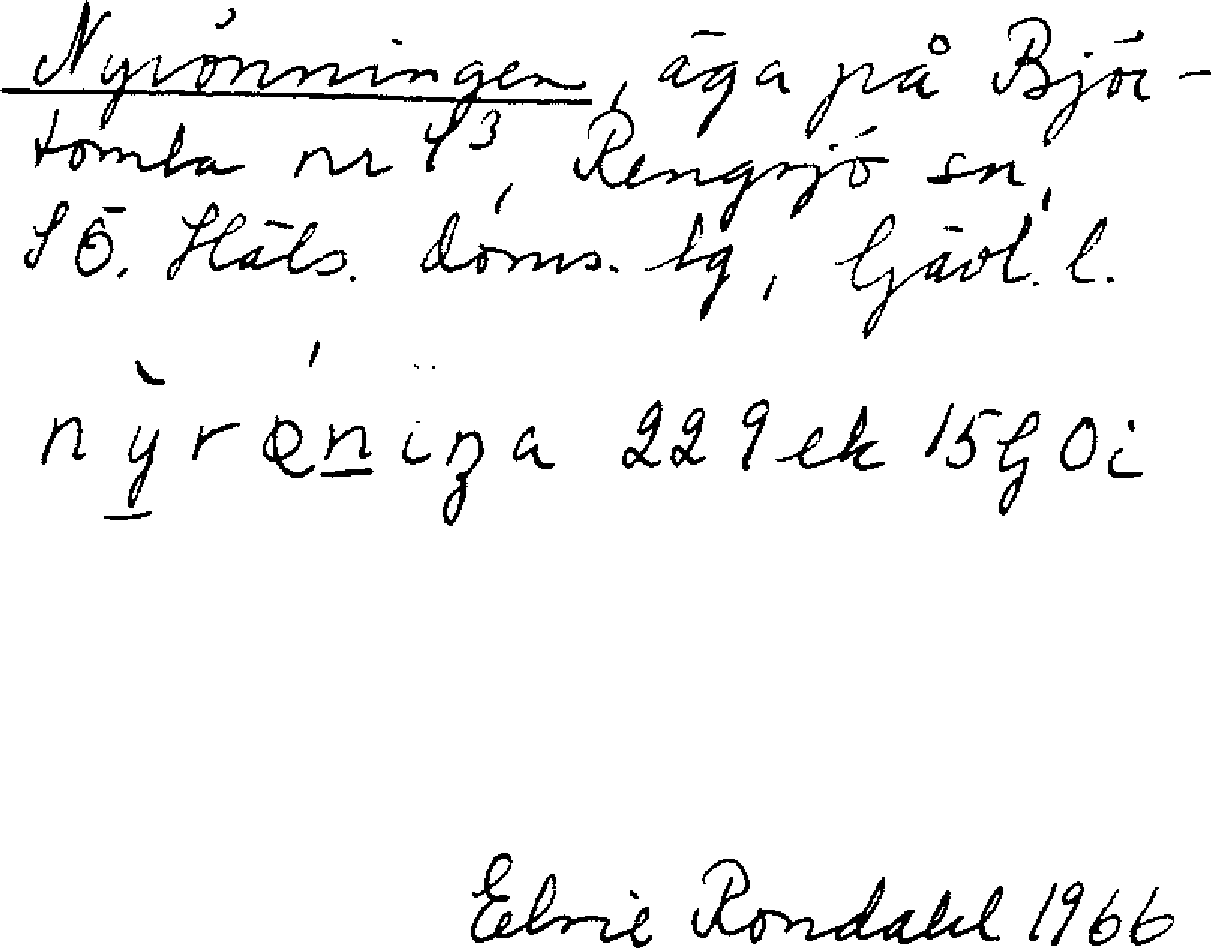 Nyrönningen, äga på Björ-
tomta nr 4³, Rengsjö sn,
SÖ. Häls. doms. tg, Gävl. l.
229 ek 15G0i
Elvie Rondahl 1966